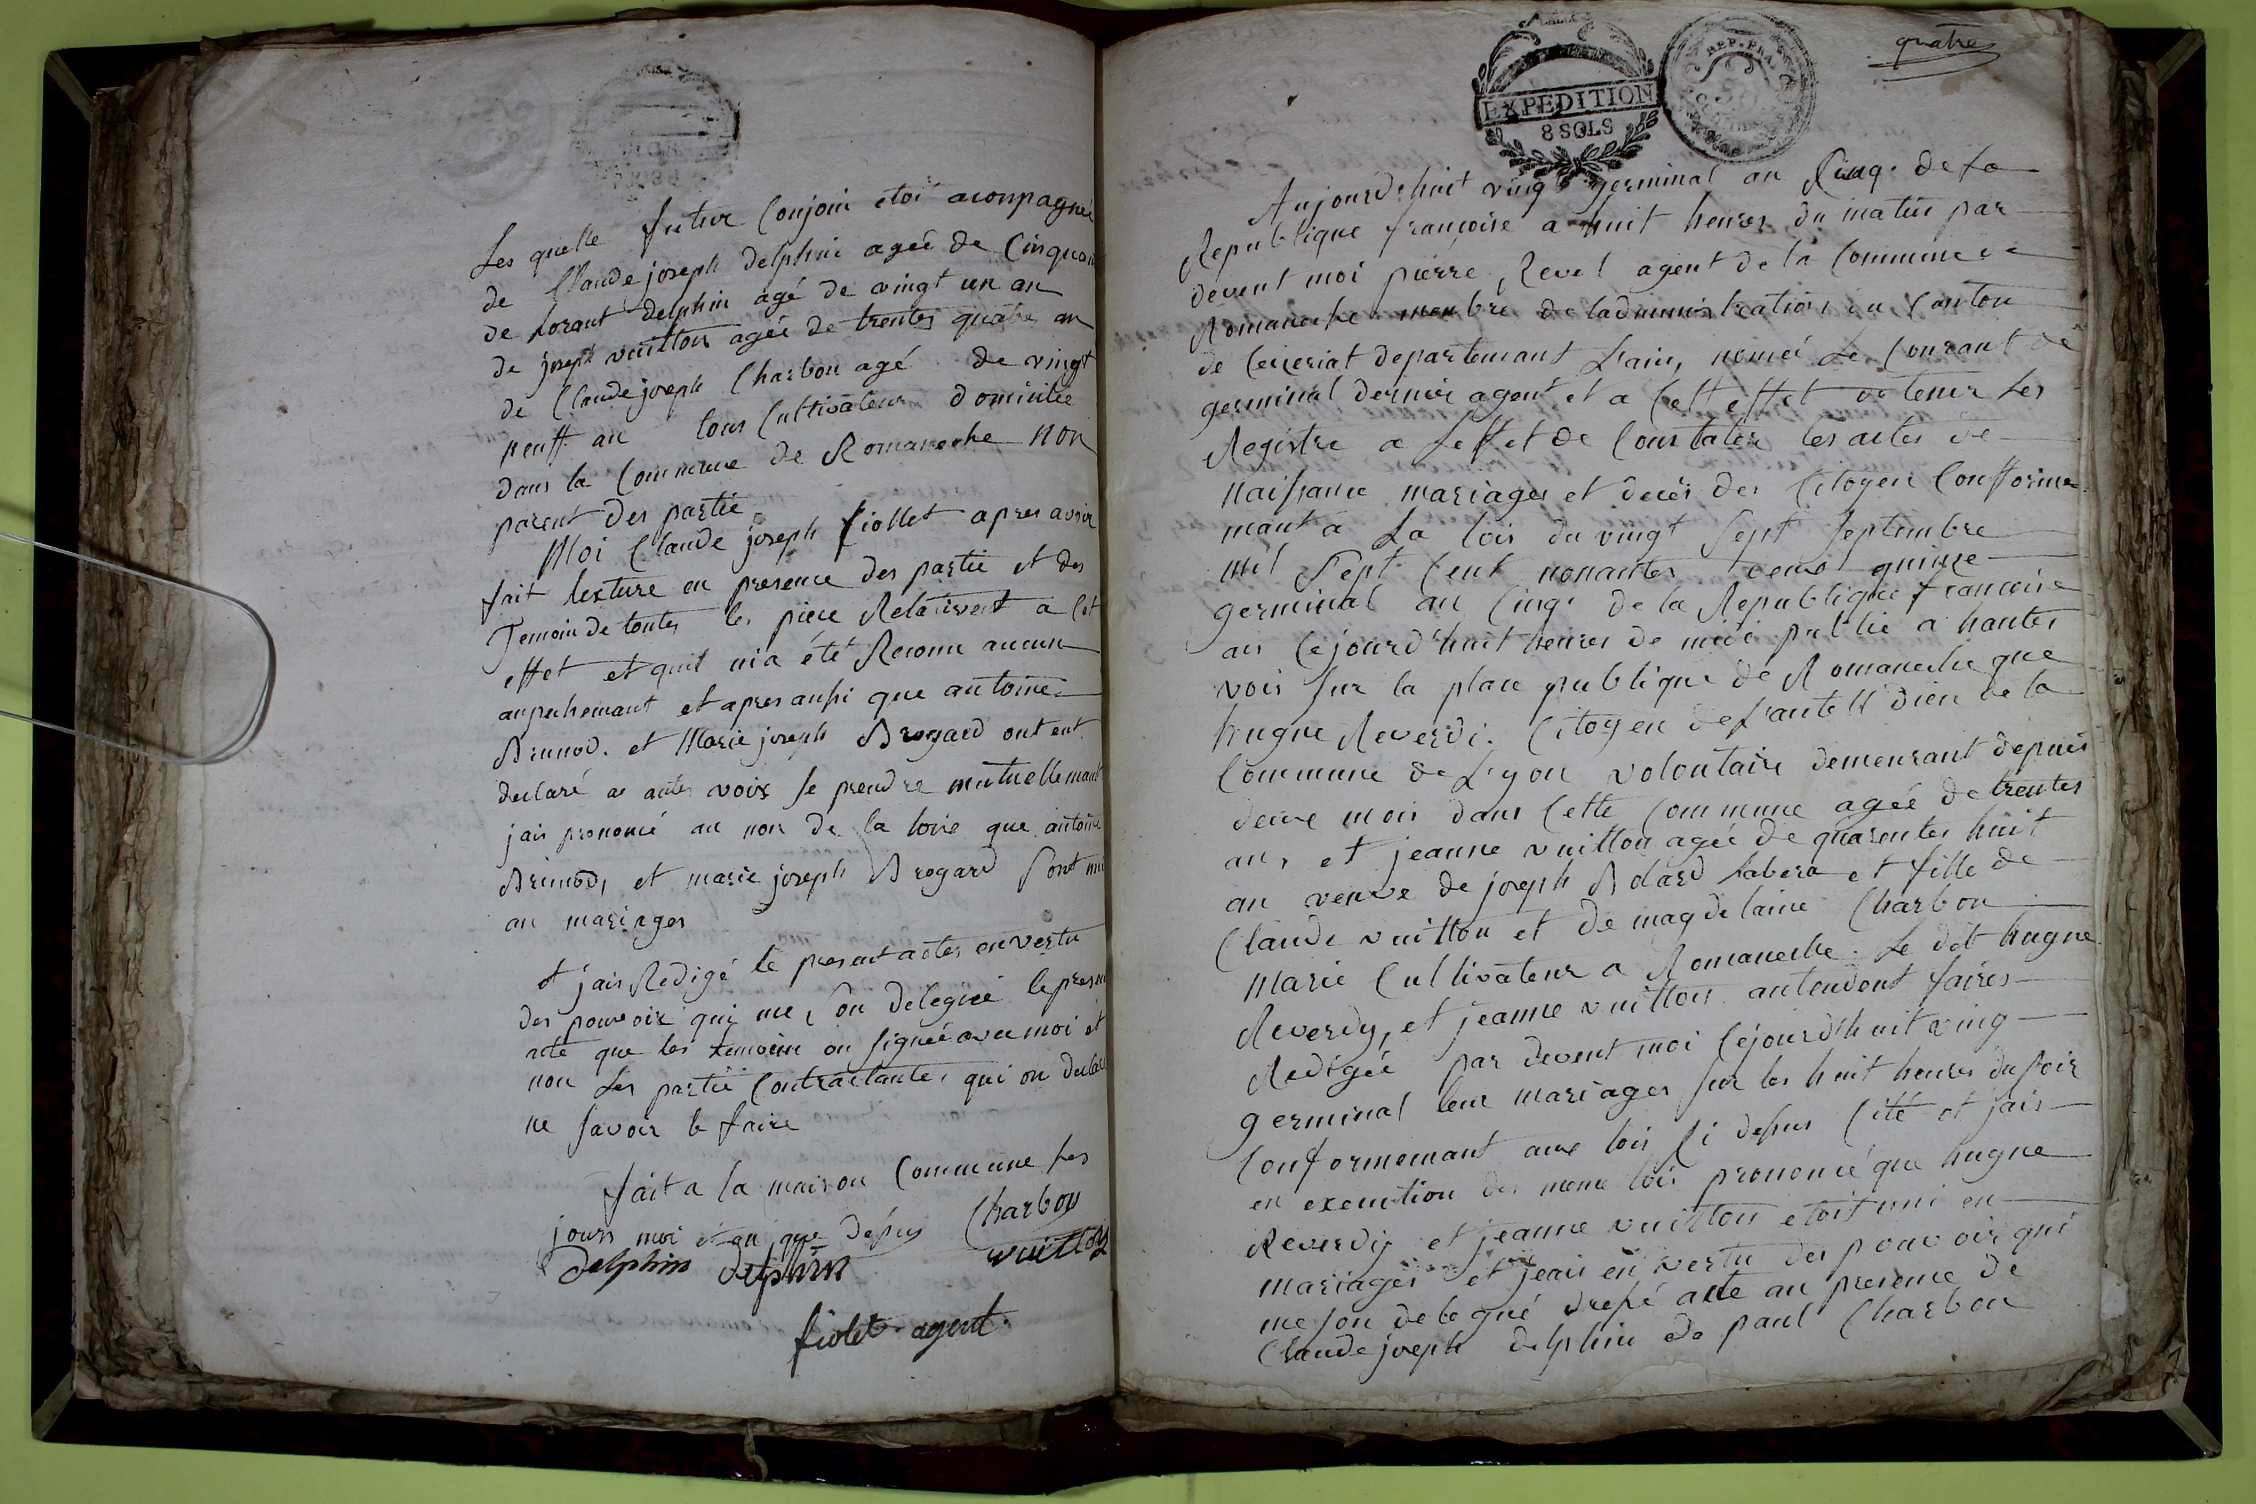 Les quelle futur Conjoin etoi aconpagnée
de Claude joseph delphin agée de Cinquan
de Lorant delphin agé de vingt un an
de joseph vuitton agée de trentes quatre an
de Claude joseph Charbon agé de vingt
neuff an tous Cultivateur domicilie
dans la Commune de Romaneche non
parent des partie
Moi Claude joseph fiollet apres avoir
fait lexture en presence des partie et des
Temoin de toutes les piece Relativent a Cet
effet et quil nia été Reconu aucun
anpechemant et apres aussi que antoine
Brunod. et Marie joseph Brogard ont ent
declaré a autes voix se prendre mutuellemant
jais prononcé au non de la loix que antoine
Brunod, et marie joseph Brogard sont uni
an mariages
et jais Redigé le present actes en vertu
des pouvoir qui me son delegué le presen
acte que les temoin on signée avec moi et
non Les partie Contractante, qui on declaré
ne savoir le faire
fait a la maison Commune les
jours moi et an que desus Charbon
delphin delphin vuitton
fiolet agent
quatre
REP. FRA.
EXPEDITION
8 SOLS
Aujourd'huit ving germinal an Cinq. de la
Republique françoise a huit heures du matin par
devent moi pierre Revel agent de la Commune de
Romaneche menbre de ladministration du Canton
de Ceizeriat departemant Lain, nomé Le Courant de
germinal dernier agent et a Cett effet de tenir les
Registre a Leffet de Constater les actes de
naissance mariages et decés des Citoyen Conforme
mant a La lois du vingt sept septembre
mil sept Cent nonantes deux quinze
germinal an Cinq. de la Republique francoise
ais Cejourd'huit heures de midi publié a hautes
vois sur la place publique de Romaneche que
hugue Reverdi. Citoyen de la
Commune de Lyon volontaire demeurant depuis
deux mois dans Cette Commune agée de trentes
an, et jeanne vuitton agée de quarentes huit
an veuve de joseph Bolard Labera et fille de
Claude vuitton et de magdelaine Charbon
Marié Cultivateur a Romaneche. Le dit hugue
Reverdy, et jeanne vuitton antendent faires
Redigée par devent moi Cejourd'huit ving
germinal leur mariages sur les huit heures du soir
Conformemant aux lois Ci desus Cité et jais
en execution des meme lois prononcé que hugue
Reverdy et jeanne vuitton etoit uni en
mariages et jeais en vertu des pouvoir qui
me son delegué dressé acte an presence de
Claude joseph delphin de paul Charbon